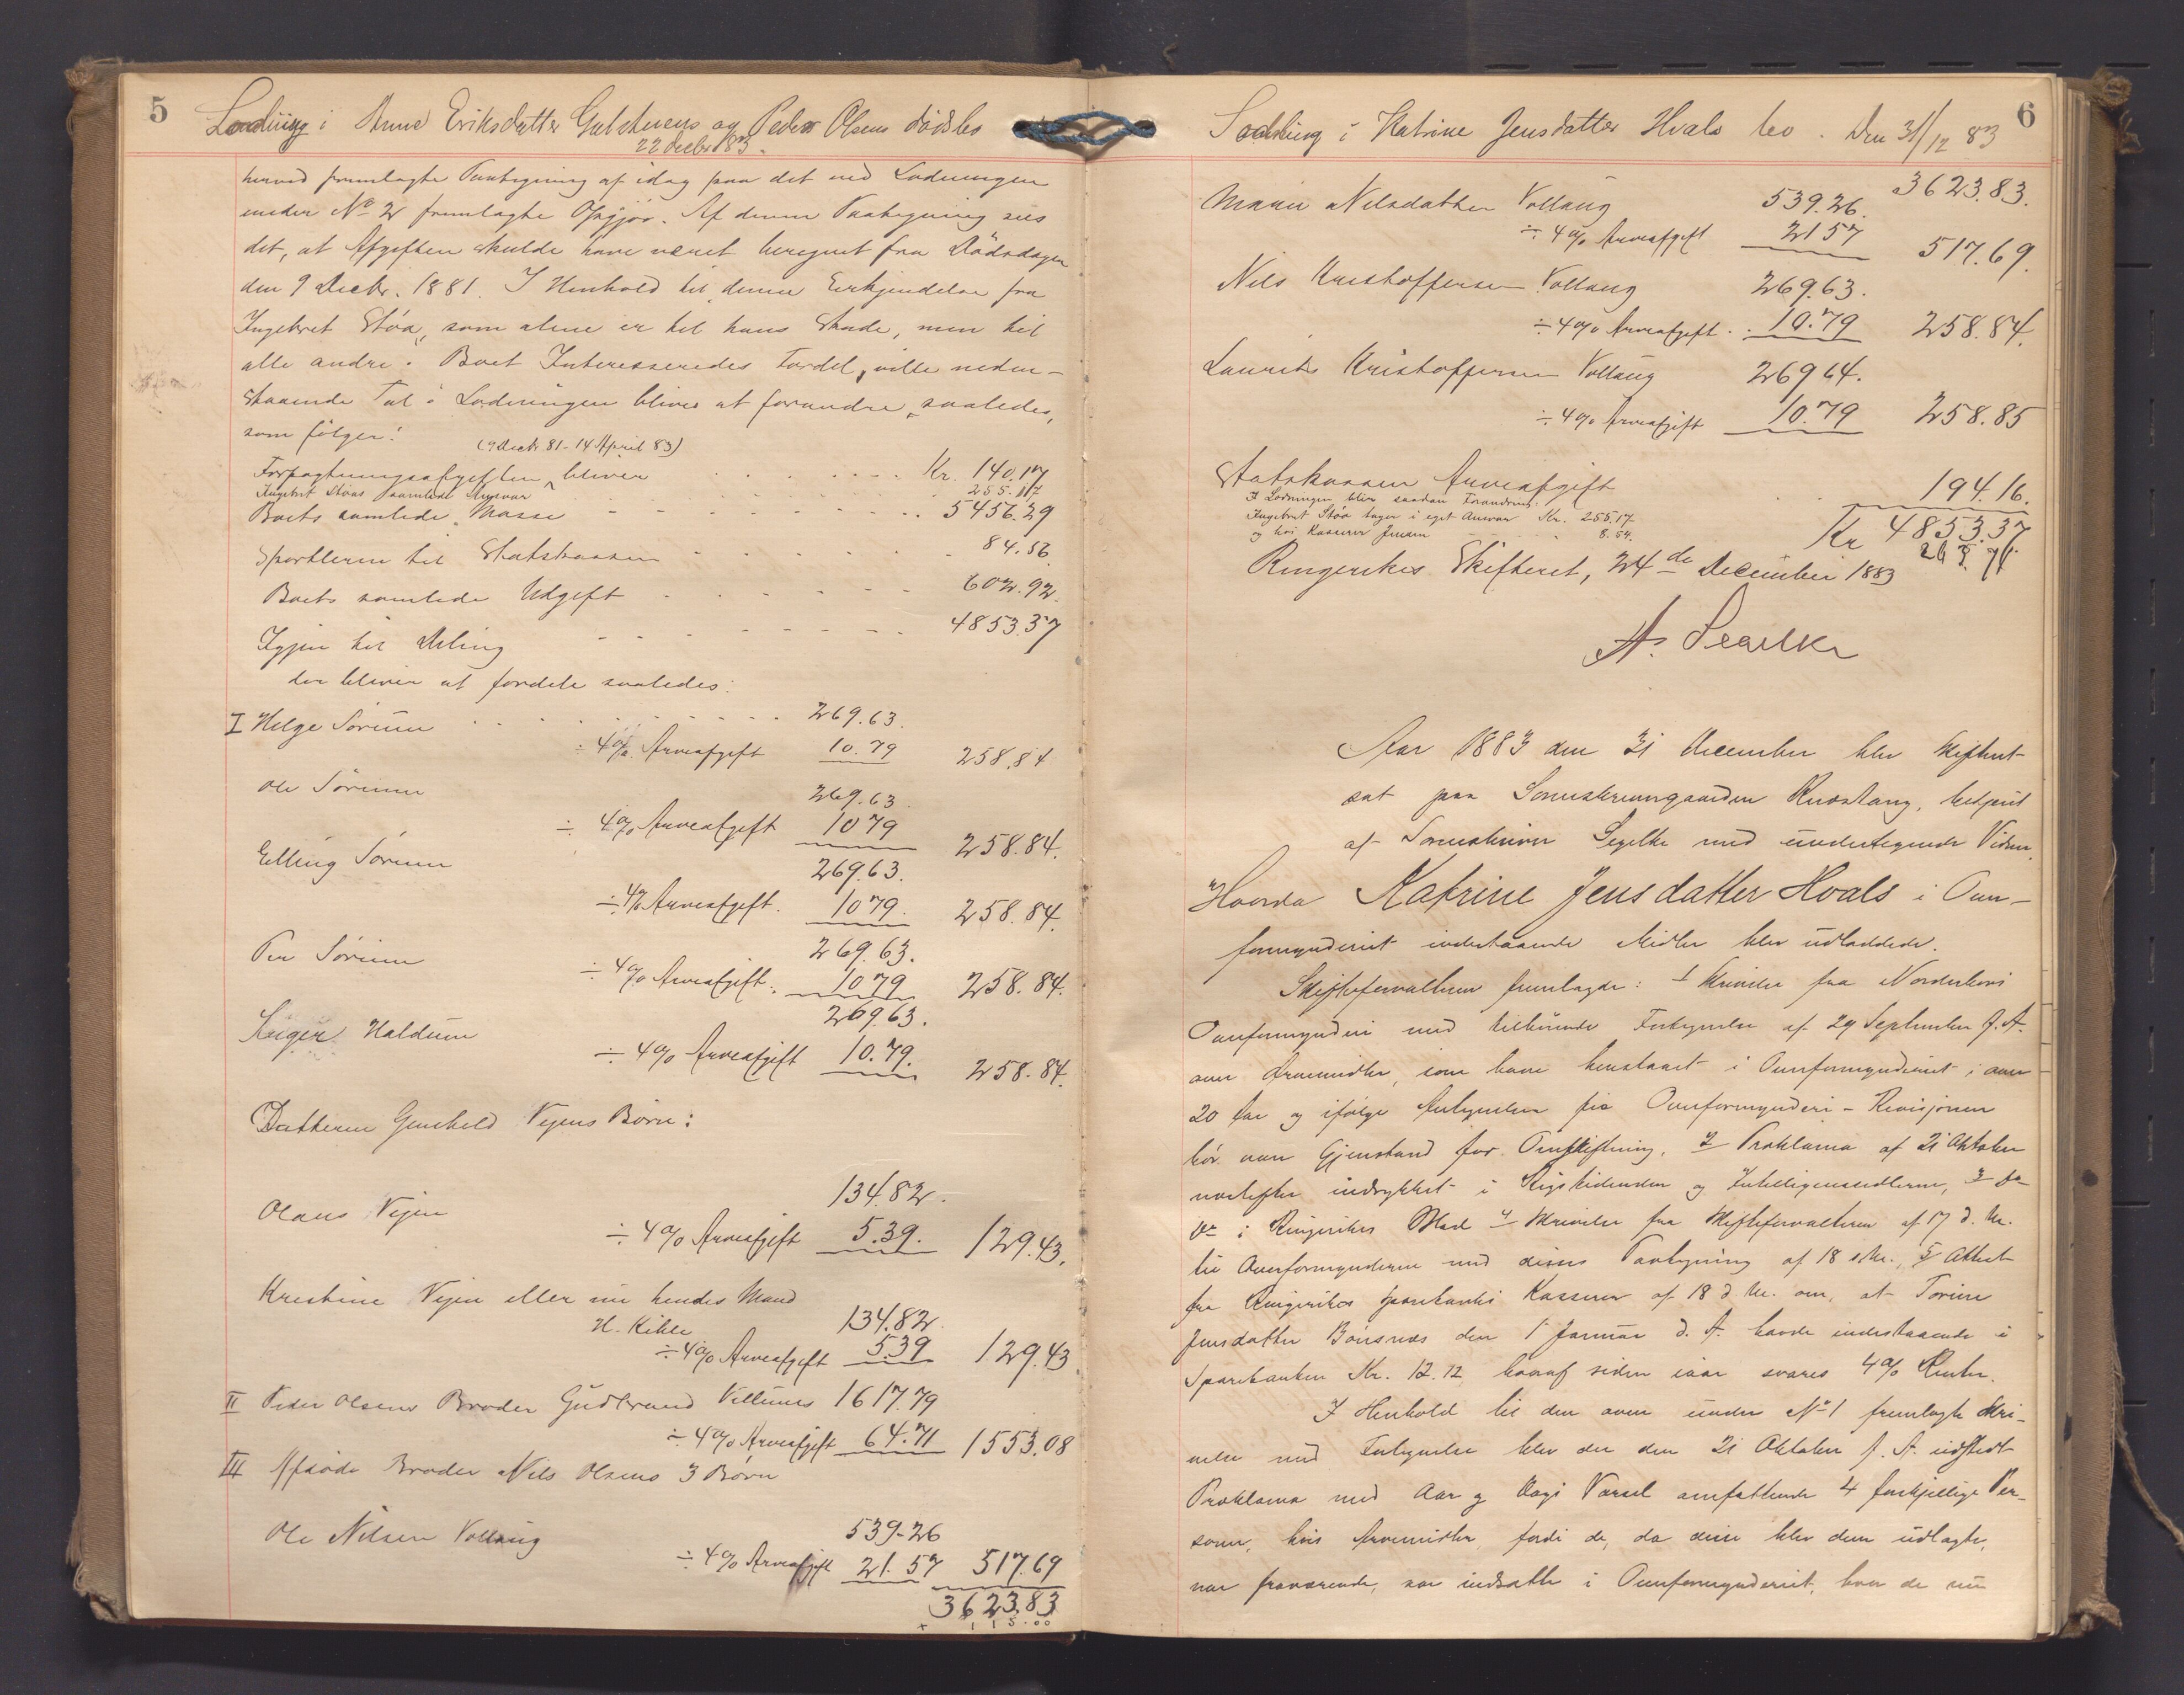 5
Lodning i Anne Eriksdatter Gulstuens og Peder Olsens dødsbo
22 decbr 83.
herved fremlagte Paategning af idag paa det ved Lodningen
under No 2 fremlagte Opgjør. Af denne Paategning sees
det, at Afgiften skulde have været beregnet fra Dödsdagen
den 9 Decbr. 1881. I Henhold til denne Erkjendelse fra
Ingebret Støa, som alene er til hans Skade, men til
alle andre i Boet Interesseredes Fordel, ville neden-
staaende Tal i Lodningen blive at forandre saaledes,
som følger:
(9 Decbr 81 - 14 April 83)
Forpagtningsafgiften bliver Kr. 140.17
Ingebret Støas samlede Ansvar 255.17
Boets samlede Masse 5456.29
Sportlerne til Statskassen 84.56
Boets samlede Udgift 602.92.
Igjen til Deling 4853.37
der bliver at fordele saaledes:
I Helge Sørum 269.63.
÷ 4% Arveafgift 10.79 258.84
Ole Sørum 269.63
÷ 4% Arveafgift 1079 258.84.
Elling Sørum 269.63.
÷ 4% Arveafgift. 1079. 258.84.
Per Sørum 269.63.
÷ 4% Arveafgift. 1079 258.84.
Haldum 269.63.
÷ 4% Arveafgift 10.79. 258.84.
Datteren Gunhild Vejens Børn:
Olaus Vejen 134.82.
÷ 4% Arveafgift 5.39. 129.43.
Kristine Vejen eller nu hendes Mand
H. Kihle 134.82.
÷ 4% Arveafgift 539 129.43
II Peder Olsens Broder Gudbrand 1617.79
÷ 4% Arveafgift 64.71 1553.08
III Afdøde Broder Nils Olsens 3 Børn
Ole Nilsen Vollaug 539-26
÷ 4% Arveafgift 21.57 517.69
3623.83
+ 115.00
6
Lodning i Katrine Jensdatter Hvals bo. Den 31/12 83
3623.83.
Maria Nilsdatter Vollaug 539.26.
÷ 4% Arveafgift 2157 517.69.
Nils Kristoffersen Vollaug 269.63.
÷ 4% Arveafgift. 10.79 258.84.
Laurits Kristoffersen Vollaug 26964.
÷ 4% Arveafgift 10.79 258.85
Statskassen Arveafgift 194.16.
I Lodningen bliver saadan Forandring:
Ingebret Støa tager i eget Ansvar Kr. 255.17
Kr 4853.37
og hos Kasserer Jensen 8.54.
263.71.
Ringerikes Skifteret, 24de December 1883
A. Segelke
Aar 1883 den 31 December blev Skifteret
sat paa Sorenskrivergaarden Knestang, betjent
af Sorenskriver Segelke med undertegnede Vidner.
Hvorda Katrine Jensdatter Hvals i Over-
formynderiet indestaaende Midler blev udloddede.
Skifteforvalteren fremlagde: 1 Skrivelse fra Norderhovs
Overformynderi med tilhørende Fortegnelse af 29 September f.A.
over Arvemidler, som have henstaaet i Overformynderiet i over
20 Aar og ifølge Antegnelse fra Overformynderi-Revisjonen
bør være Gjenstand for Omskiftning, 2 Proklama af 21 Oktober
næstefter indrykket i Rigstidenden og Intelligenssedlerne, 3 
i Ringerikes Blad 4 Skrivelse fra Skifteforvalteren af 17 d. M.
til Overformynderne med disses Paategning af 18 s.M., 5 Attest
fra Ringerikes Sparebanks Kasserer af 18 d. M. om, at Torine
Jensdatter Bønsnæs den 1 Januar d. A. havde indestaaende i
Sparebanken Kr. 12.12 hvoraf siden iaar svares 4% Renter.
I Henhold til den oven under No 1 fremlagte Skri-
velse med Fortegnelse blev der den 21 Oktober f. A. udstedt
Proklama med Aar og Dags Varsel omfattende 4 forskjellige Per-
soner, hvis Arvemidler, fordi de, da disse blev dem udlagte,
var fraværende, var indsatte i Overformynderiet, hvor de nu